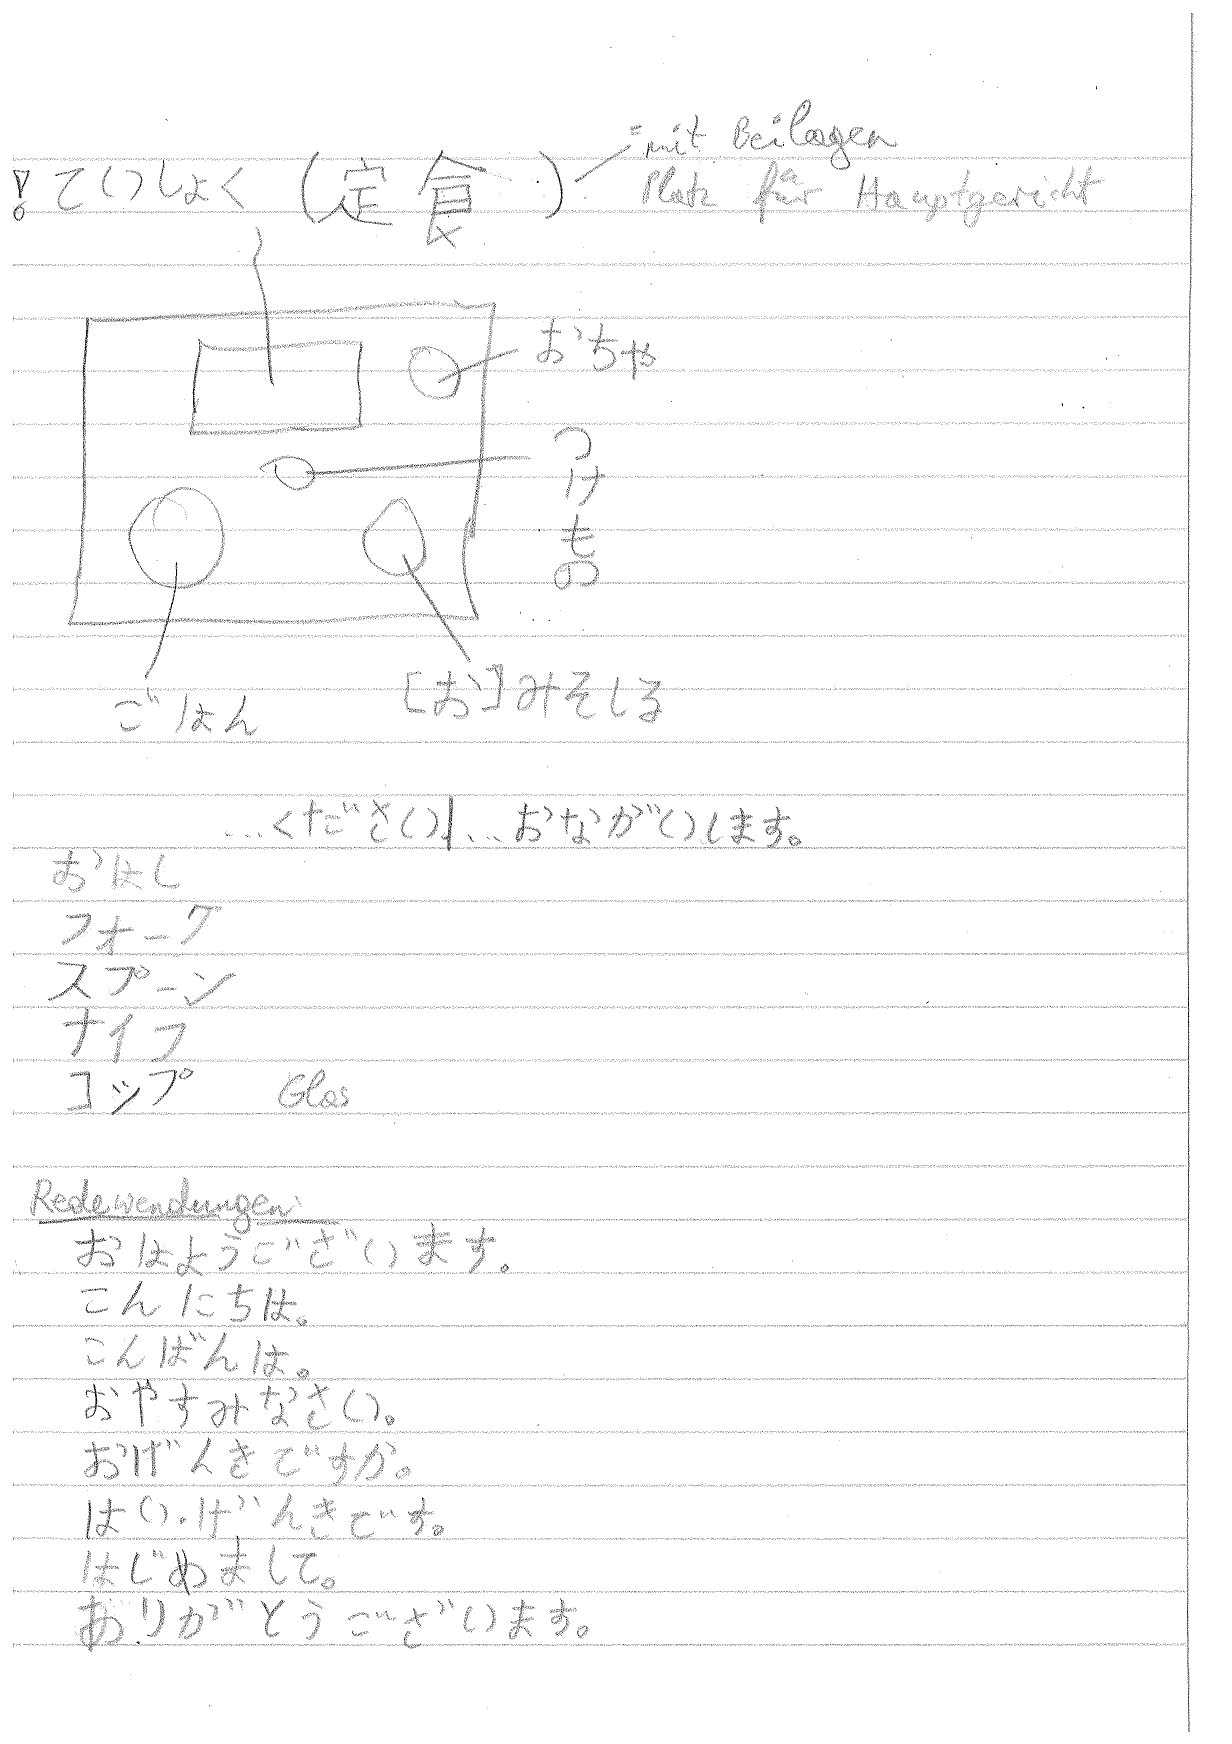 mit Beilagen
! ていしょく (定食)
Platz für Hauptgericht
おちゃ
つけもの
[お]みそしる
ごはん
...ください。|...おながいします。
おはし
フォーク
スプーン
ナイフ
コップ Glas
Redewendungen
おはようございます。
こんにちは。
こんばんは。
おやすみなさい。
おげんきですか。
はい.げんきです。
はじめまして。
ありがとうございます。